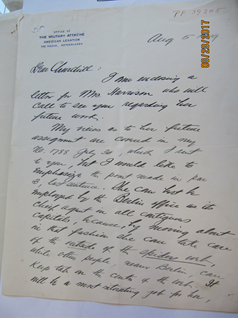 PF 39205
OFFICE OF
THE MILITARY ATTACHE
AMERICAN LEGATION
THE HAGUE, NETHERLANDS
Aug 5 1919
09/20/2017
Dear Churchill:
I am enclosing a
letter for Mrs Harrison who will
call to see you regarding her
future work.
My views as to her future
assignment are covered in my
No. 1788 July 30, which I sent
to you, but I would like to
emphasize the point made in par
3, last sentence. She can best be
employed by the Berlin Office as its
chief agent in all contiguous
capitals, because, by moving about
in that fashion she can take care
of the outside of the work,
while other people, inside Berlin, can
keep tab on the centre of the web. It
will be a most interesting job for her,